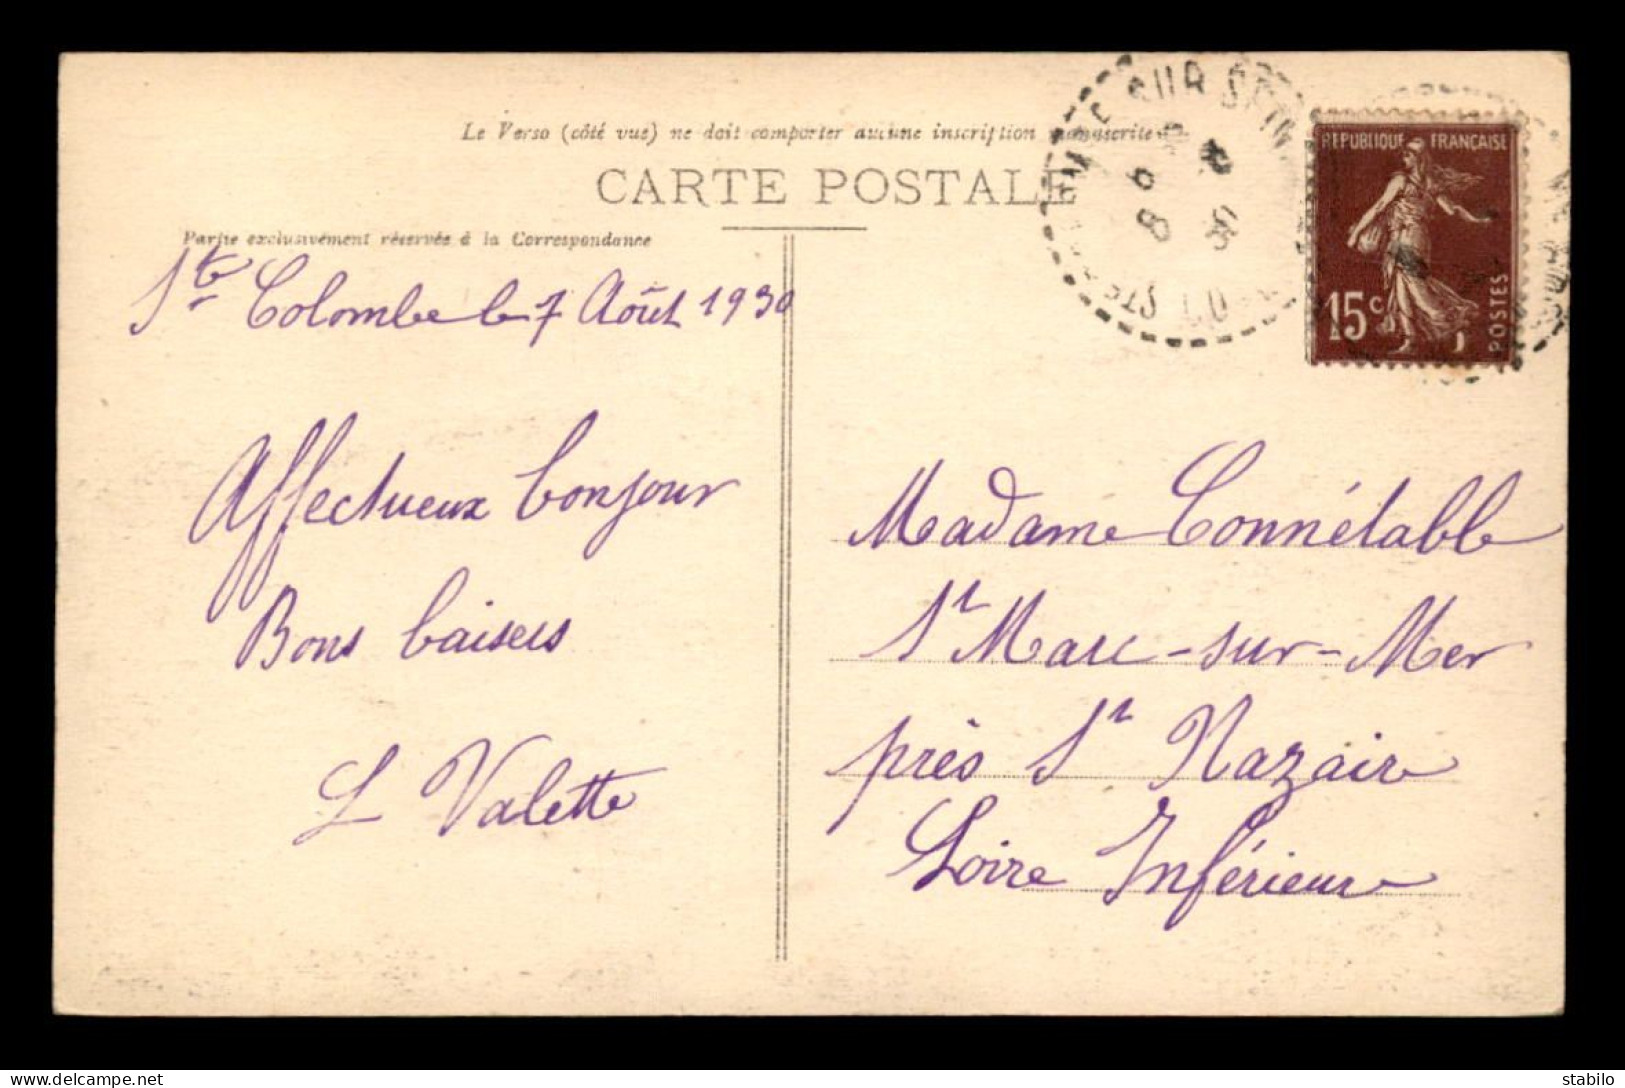 Le Verso (côté vue) ne doit comporter aucune inscription manuscrite
CARTE POSTALE
Partie exclusivement réservée à la Correspondance
REPUBLIQUE FRANÇAISE
15c
POSTES
SUR SEINE
Ste Colombe le 7 Août 1930
Affectueux bonjour
Bons baisers
L Valette
Madame Connétable
St Marc-sur-Mer
près St Nazaire
Loire Inférieure
delcampe.net
stabilo